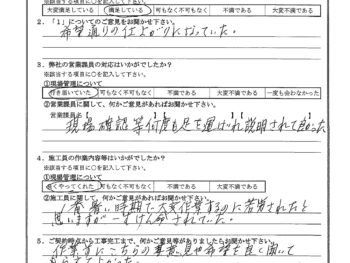 ※該当する項目に○を記入して下さい。
大変満足している 満足している 可も不可もない 不満である 大変不満である
2.「1」についてのご意見をお聞かせ下さい。
希望通りの仕上がりになっていた。
3. 弊社の営業課員の対応はいかがでしたか？
※該当する項目に○を記入して下さい。
①現場管理について
行き届いていた 可も不可もなく 不満である 大変不満である 一度も会わなかった
②営業課員に関して、何かご意見があればお聞かせ下さい。
営業課員名【 】【 】【 】
現場確認等何度も足を運ばれ説明されて良かった
4. 施工員の作業内容等はいかがでしたか？
※該当する項目に○を記入して下さい。
①現場管理について
良くやってくれた 可も不可もなく 不満である 大変不満である
②施工員に関して、何かご意見があればお聞かせ下さい。
1番暑い時期で大変作業するのに苦労されたと
思いますが一生けん命されていた。
5. ご契約時点から工事完工まで、何かご意見等がありましたらお聞かせ下さい。
作業員にこちらの事意見や希望を良く聞いて
もらえてよかった。